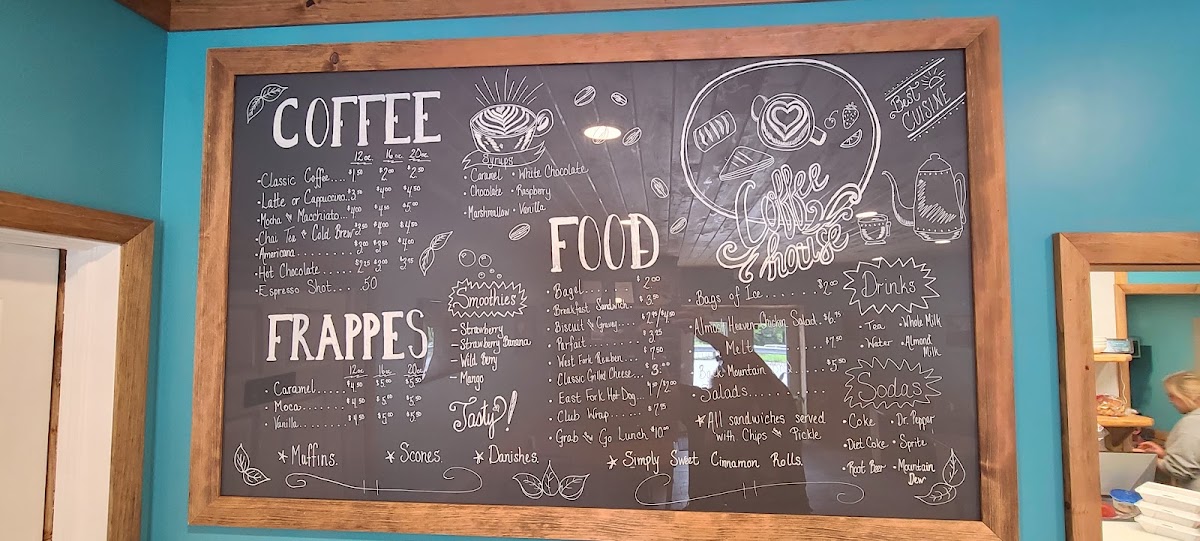 COFFEE
12 oc. 16 oc. 20 oc.
• Classic Coffee.... $1.50 $2.00 $2.50
• Latte or Cappuccino.. $3.50 $4.00 $4.50
• Mocha & Macchiato... $4.00 $4.50 $5.00
• Chai Tea & Cold Brew $3.00 $4.00
• Americana $3.50 $4.00
• Hot Chocolate....... $3.00
• Espresso Shot.... .50
FRAPPES
12oc 16oc 20oc
• Caramel....... $4.50 $5.00 $5.50
• Moca......... $4.50 $5.00 $5.50
• Vanilla........ $4.50 $5.00 $5.50
Syrups
• Caramel • White Chocolate
• Chocolate • Raspberry
• Marshmallow • Vanilla
Smoothies
– Strawberry
– Strawberry Banana
– Wild Berry
– Mango
Tasty!
FOOD
• Bagel........ $2.00
• Breakfast Sandwich. $3.50
• Biscuit & Gravy.... $2.75/$4.50
• Parfait........ $3.25
• West Fork Reuben... $7.50
• Classic Grilled Cheese... $3.00
• East Fork Hot Dog..
• Club Wrap...... $7.75
• Grab & Go Lunch $10.00
• Bags of Ice.......... $2.00
• Almost Heaven Chicken Salad. $6.75
Melt $7.50
Mountain $5.50
• Salads.
★ All sandwiches served
with Chips & Pickle.
Coffee
house
Best
CUISINE
Drinks
• Tea • Whole Milk
• Water • Almond
Milk
Sodas
• Coke • Dr. Pepper
• Diet Coke • Sprite
• Root Beer • Mountain
Dew
★ Muffins. ★ Scones ★ Danishes. ★ Simply Sweet Cinnamon Rolls.